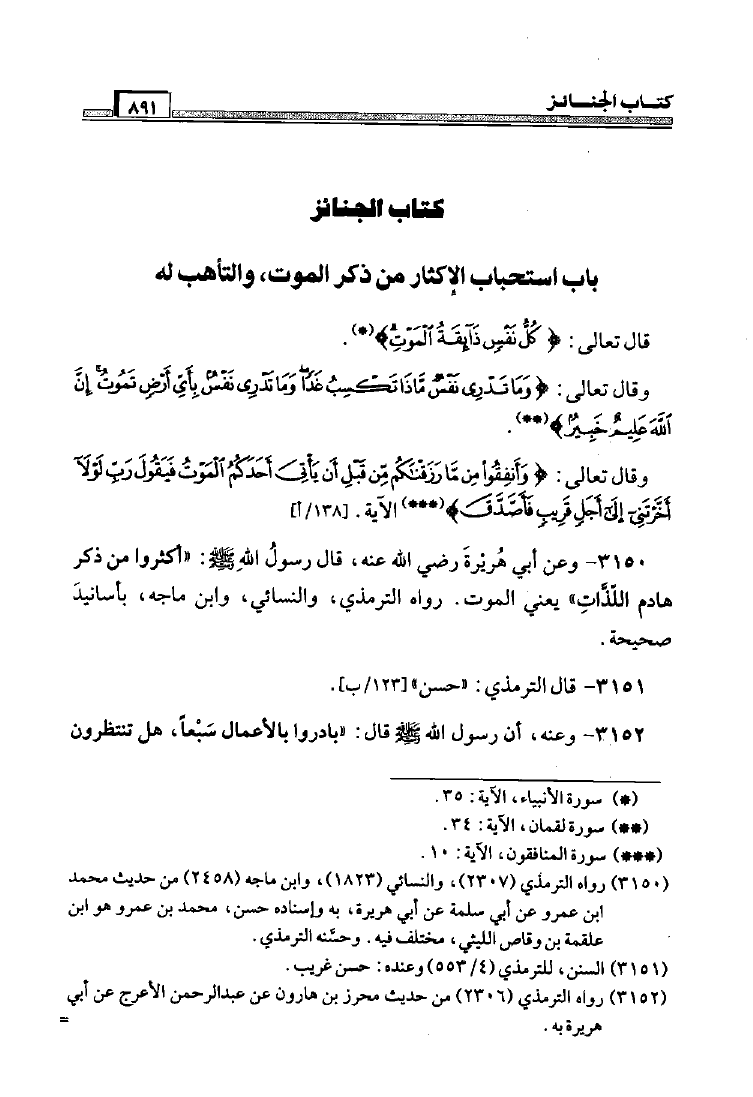 كتـاب الجنـــائـز
٨٩١
كتاب الجنائز
باب استحباب الإكثار من ذكر الموت، والتأهب له
قال تعالى: ﴿ كُلُّ نَفْسٍ ذَآئِقَةُ الْمَوْتِ﴾(*).
وقال تعالى: ﴿ وَمَا تَدْرِى نَفْسٌ مَّاذَا تَكْسِبُ غَدًا وَمَا تَدْرِى نَفْسٌ بِأَيِّ أَرْضٍ تَمُوتُ إِنَّ
اللَّهَ عَلِيمٌ خَبِيرٌ﴾(**).
وقال تعالى: ﴿ وَأَنفِقُوا۟ مِن مَّا رَزَقْنَٰكُم مِّن قَبْلِ أَن يَأْتِىَ أَحَدَكُمُ الْمَوْتُ فَيَقُولَ رَبِّ لَوْلَآ
أَخَّرْتَنِىٓ إِلَىٰٓ أَجَلٍ قَرِيبٍ فَأَصَّدَّقَ﴾(***) الآية. [١٣٨/أ]
٣١٥٠- وعن أبي هُرَيْرةَ رضي الله عنه، قال رسولُ اللهِ ﷺ: «أكثروا من ذكر
هادم اللّذَّاتِ» يعني الموت. رواه الترمذي، والنسائي، وابن ماجه، بأسانيدَ
صحيحة.
٣١٥١- قال الترمذي: «حسن» [١٢٣/ب].
٣١٥٢- وعنه، أن رسول الله ﷺ قال: «بادروا بالأعمال سَبْعاً، هل تنتظرون
(*) سورة الأنبياء، الآية: ٣٥.
(**) سورة لقمان، الآية: ٣٤.
(***) سورة المنافقون، الآية: ١٠.
(٣١٥٠) رواه الترمذي (٢٣٠٧)، والنسائي (١٨٢٣)، وابن ماجه (٢٤٥٨) من حديث محمد
ابن عمرو عن أبي سلمة عن أبي هريرة، به وإسناده حسن، محمد بن عمرو هو ابن
علقمة بن وقاص الليثي، مختلف فيه. وحسَّنه الترمذي.
(٣١٥١) السنن، للترمذي (٥٥٣/٤) وعنده: حسن غريب.
(٣١٥٢) رواه الترمذي (٢٣٠٦) من حديث محرز بن هارون عن عبدالرحمن الأعرج عن أبي
هريرة به.
=